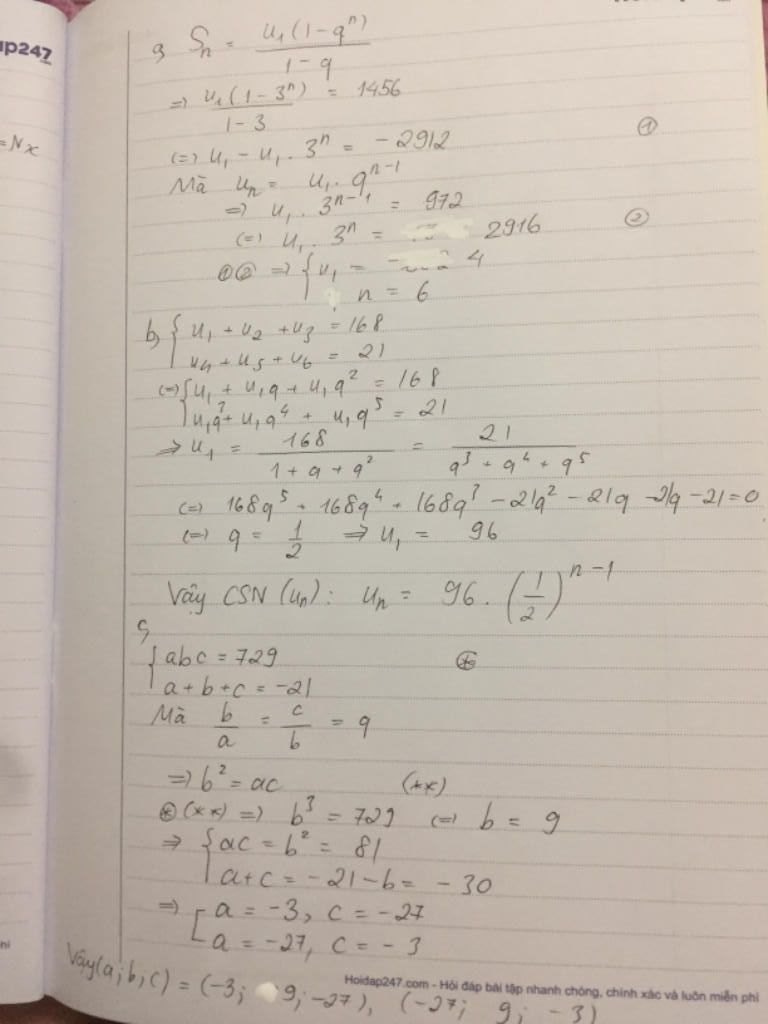 ap247
= Nx
a, Sn = u₁(1 - qⁿ) / (1 - q)
=> u₁(1 - 3ⁿ) / (1 - 3) = 1456
(=) u₁ - u₁ . 3ⁿ = - 2912 ①
Mà uₙ = u₁ . qⁿ⁻¹
=> u₁ . 3ⁿ⁻¹ = 972
(=) u₁ . 3ⁿ = 2916 ②
①② => { u₁ = 4
n = 6
b, { u₁ + u₂ + u₃ = 168
u₄ + u₅ + u₆ = 21
(=) { u₁ + u₁q + u₁q² = 168
u₁q³ + u₁q⁴ + u₁q⁵ = 21
=> u₁ = 168 / (1 + q + q²) = 21 / (q³ + q⁴ + q⁵)
(=) 168q⁵ + 168q⁴ + 168q³ - 21q² - 21q - 21q - 21 = 0
(=) q = 1/2 => u₁ = 96
Vậy CSN (uₙ): uₙ = 96 . (1/2)ⁿ⁻¹
c,
{ abc = 729 (*)
a + b + c = -21
Mà b/a = c/b = q
=> b² = ac (**)
(*) (**) => b³ = 729 (=) b = 9
=> { ac = b² = 81
a + c = - 21 - b = - 30
=> [ a = -3, c = -27
a = -27, c = - 3
Vậy (a; b; c) = (-3; 9; -27), (-27; 9; -3)
Hoidap247.com - Hỏi đáp bài tập nhanh chóng, chính xác và luôn miễn phí